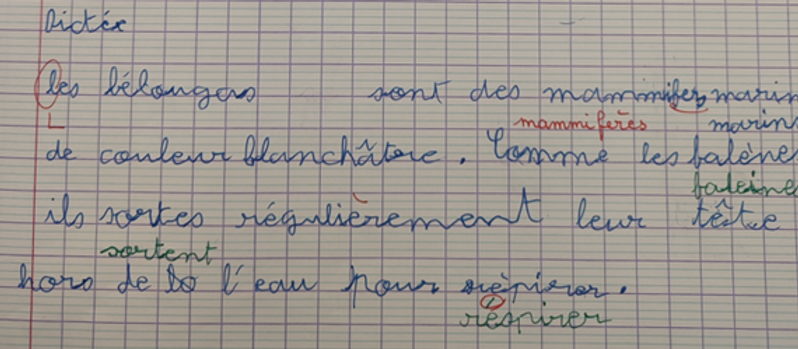 Dictée
les bélougas sont des mammifers marin
L mammifères marin
de couleur blanchâtre. Comme les balène
baleine
ils sortes régulièrement leur tête
sortent
hors de l'eau pour rèpirer.
respirer